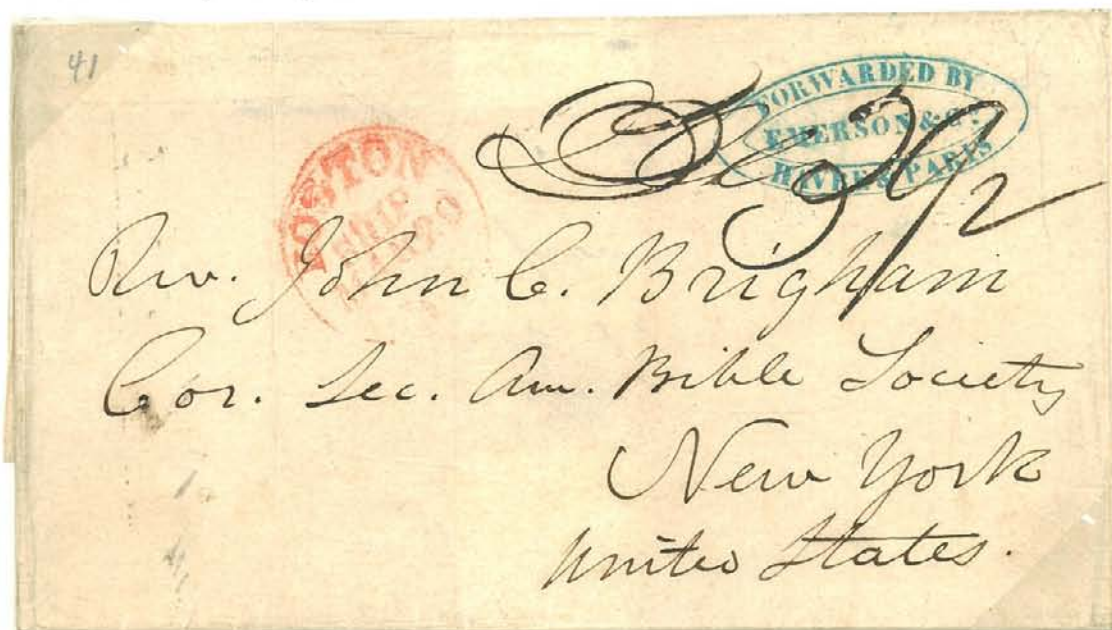 41
FORWARDED BY
EMERSON & Co.
HAVRE & PARIS
BOSTON
18
Rev. John C. Brigham
Cor. Sec. Am. Bible Society
New York
United States.